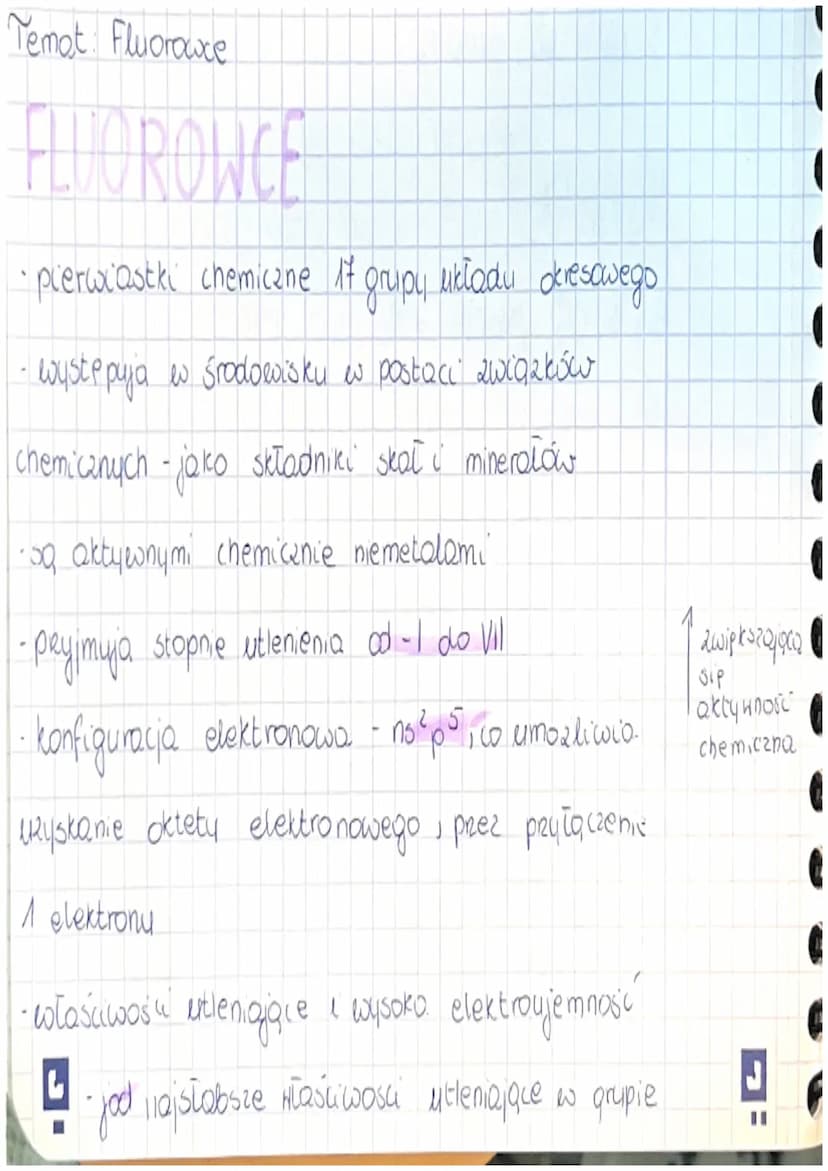 Temat: Fluorowce
FLUOROWCE
· pierwiastki chemiczne 17 grupy układu okresowego
- występują w środowisku w postaci związków
chemicznych - jako składniki skał i minerałów
· są aktywnymi chemicznie niemetalami
- pryjmują stopnie utlenienia od -I do VII
· konfiguracja elektronowa - ns² p⁵, co umożliwia
uzyskanie oktetu elektronowego, przez przyłączenie
1 elektronu
· właściwości utleniające i wysoka elektroujemność
- jod najsłabsze właściwości utleniające w grupie
↑ zwiększająca
się
aktywność
chemiczna